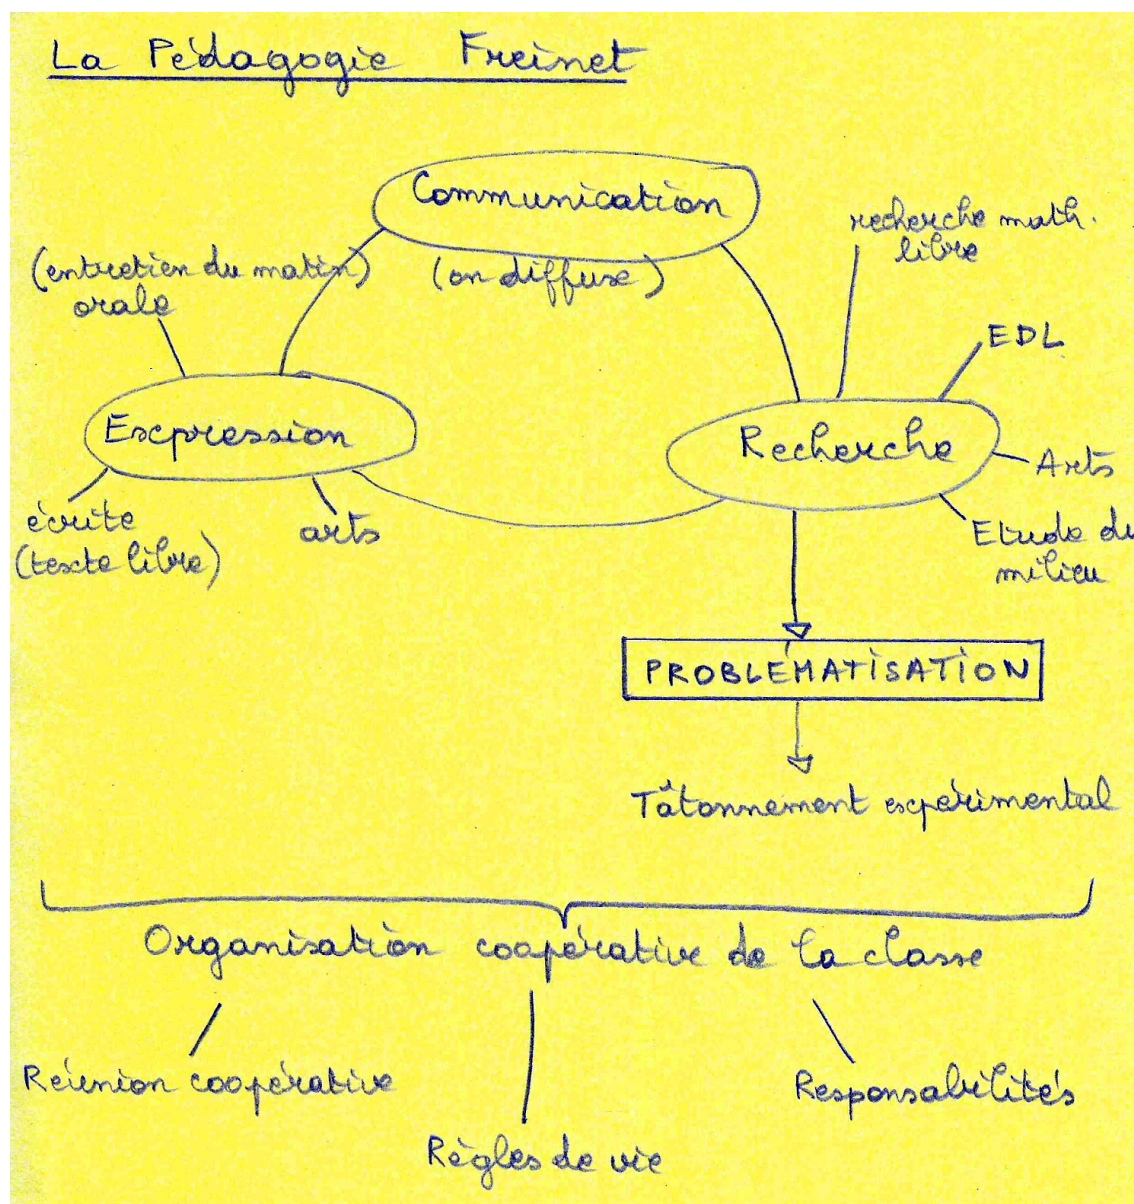 La Pédagogie Freinet
Communication
(on diffuse)
(entretien du matin)
orale
Expression
écrite
(texte libre)
arts
recherche math.
libre
EDL
Recherche
Arts
Etude du
milieu
PROBLÉMATISATION
Tâtonnement expérimental
Organisation coopérative de la classe
Réunion coopérative
Règles de vie
Responsabilités